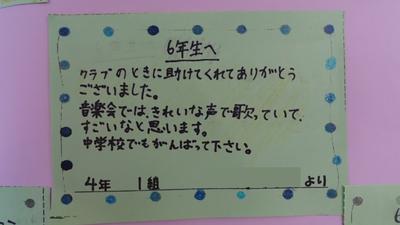 6年生へ
クラブのときに助けてくれてありがとう
ございました。
音楽会では、きれいな声で歌っていて、
すごいなと思います。
中学校でもがんばって下さい。
4年 1組 より